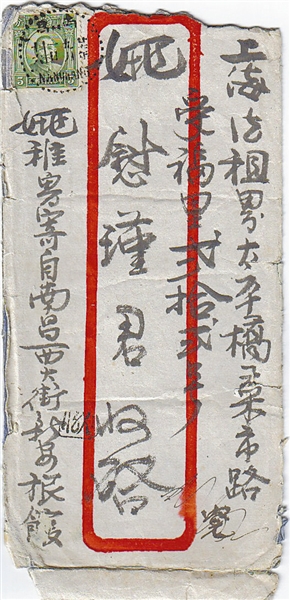 上海法租界太平橋菜市路
受福里弍拾弍号
姚慰瑾君收啓
姚稚男寄自南昌西大街新安旅館
5